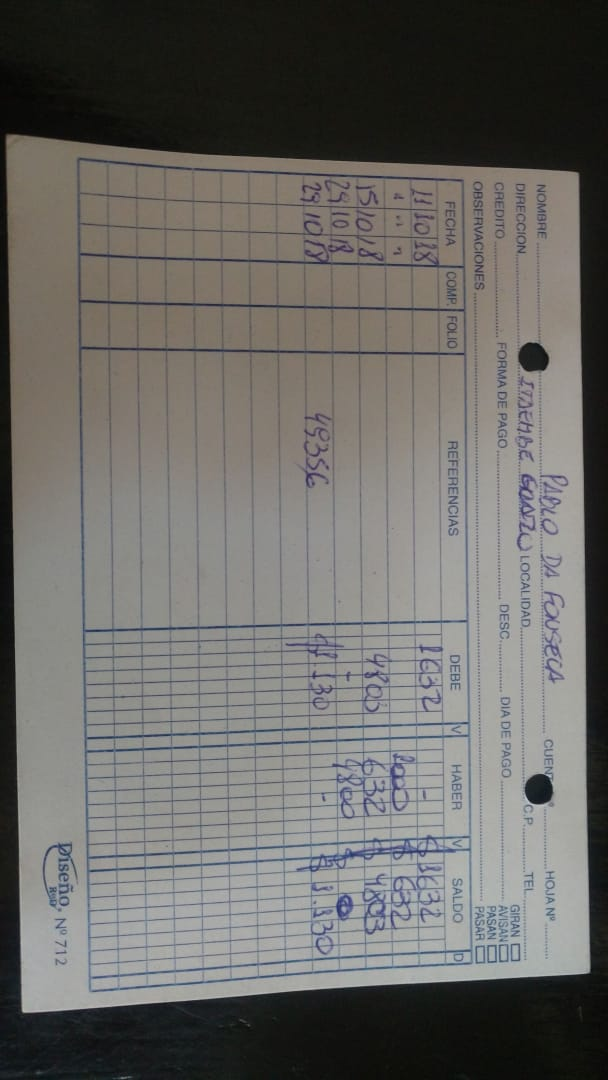 NOMBRE PABLO DA FONSECA CUENTA Nº HOJA Nº
DIRECCION LOCALIDAD C.P. TEL.
CREDITO FORMA DE PAGO DESC. DIA DE PAGO
OBSERVACIONES
GIRAN
AVISAN
PASAN
PASAR
FECHA COMP. FOLIO REFERENCIAS DEBE V HABER V SALDO D
11 10 18 1632 - $ 1632
" " " 1000 $ 632
15 10 18 4803 632 $ 4803
29 10 18 - 4800 $ 0
29 10 18 49356 $1.130 - $ 1.130
Diseño Nº 712